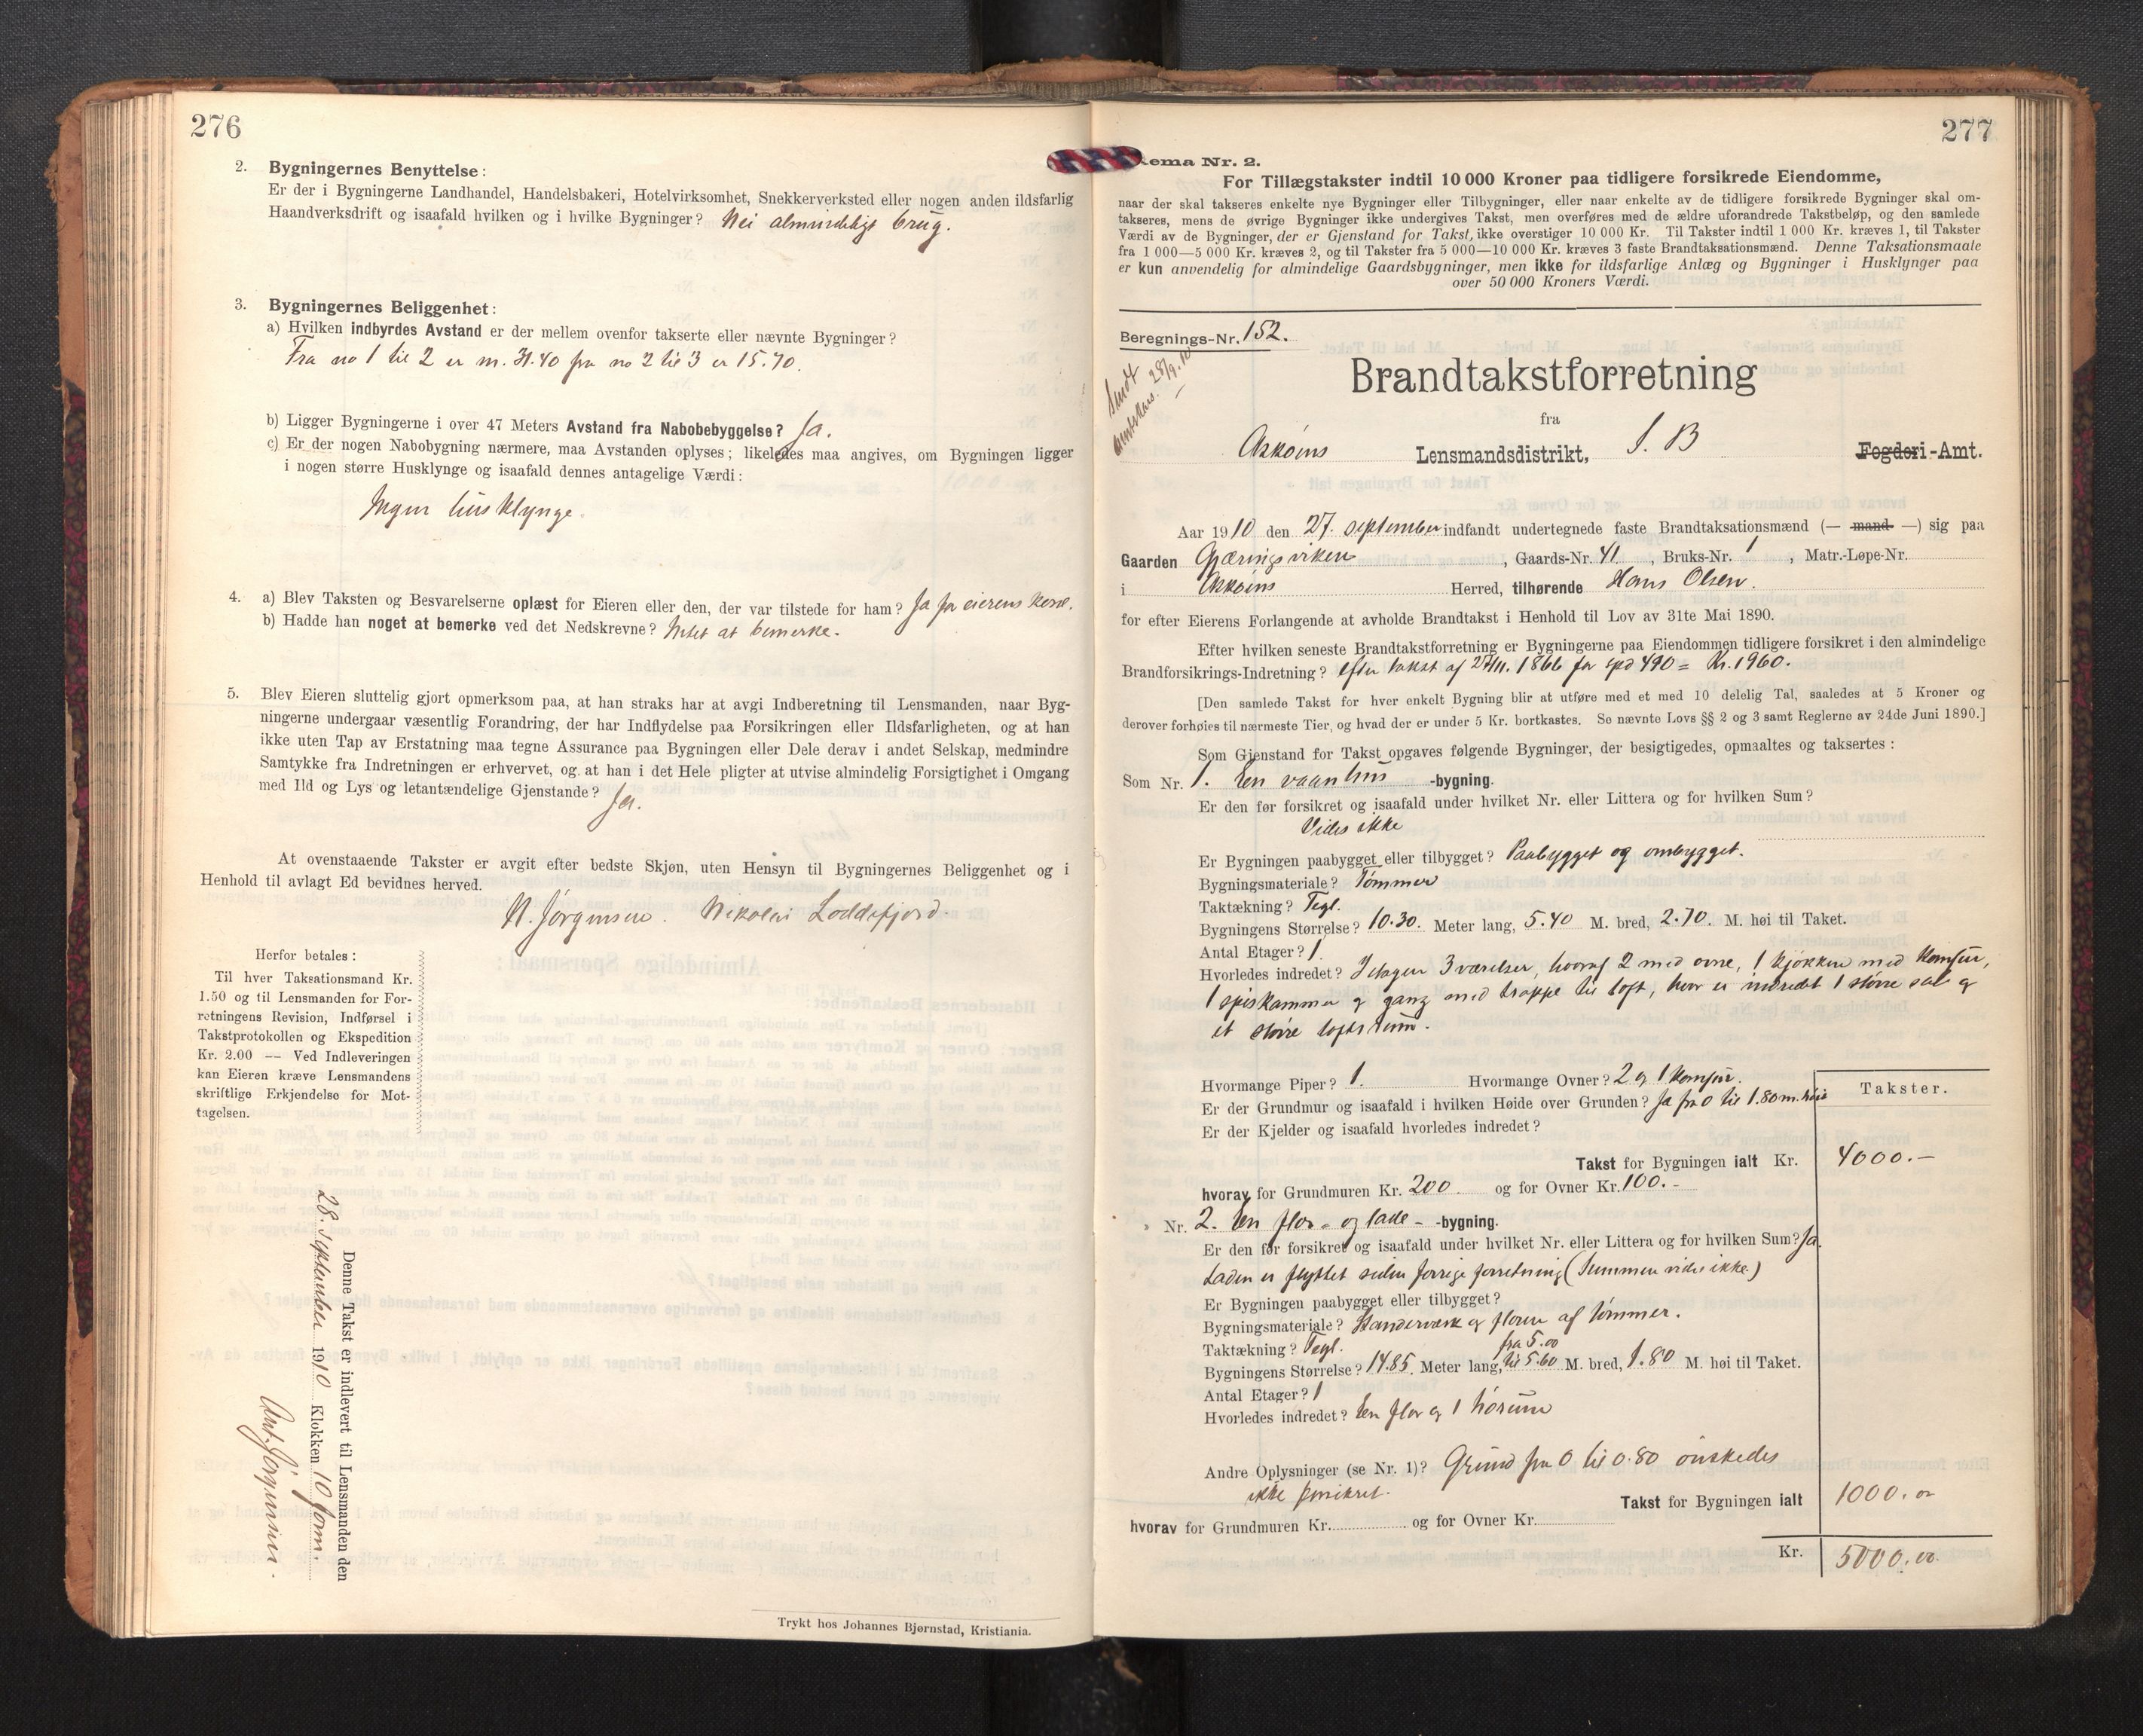 276
2. Bygningernes Benyttelse:
Er der i Bygningerne Landhandel, Handelsbakeri, Hotelvirksomhet, Snekkerverksted eller nogen anden ildsfarlig
Haandverksdrift og isaafald hvilken og i hvilke Bygninger? Nei almindeligt brug.
3. Bygningernes Beliggenhet:
a) Hvilken indbyrdes Avstand er der mellem ovenfor takserte eller nævnte Bygninger?
Fra no 1 til 2 er m. 31.40 fra no 2 til 3 er 15.70.
b) Ligger Bygningerne i over 47 Meters Avstand fra Nabobebyggelse? Ja.
c) Er der nogen Nabobygning nærmere, maa Avstanden oplyses; likeledes maa angives, om Bygningen ligger
i nogen større Husklynge og isaafald dennes antagelige Værdi:
Ingen husklynge.
4. a) Blev Taksten og Besvarelserne oplæst for Eieren eller den, der var tilstede for ham? Ja for eierens kone.
b) Hadde han noget at bemerke ved det Nedskrevne? Intet at bemerke.
5. Blev Eieren sluttelig gjort opmerksom paa, at han straks har at avgi Indberetning til Lensmanden, naar Byg-
ningerne undergaar væsentlig Forandring, der har Indflydelse paa Forsikringen eller Ildsfarligheten, og at han
ikke uten Tap av Erstatning maa tegne Assurance paa Bygningen eller Dele derav i andet Selskap, medmindre
Samtykke fra Indretningen er erhvervet, og at han i det Hele pligter at utvise almindelig Forsigtighet i Omgang
med Ild og Lys og letantændelige Gjenstande? Ja.
At ovenstaaende Takster er avgit efter bedste Skjøn, uten Hensyn til Bygningernes Beliggenhet og i
Henhold til avlagt Ed bevidnes herved.
N. Jørgensen. Nikolai Loddefjord.
Herfor betales:
Til hver Taksationsmand Kr.
1.50 og til Lensmanden for For-
retningens Revision, Indførsel i
Takstprotokollen og Ekspedition
Kr. 2.00 — Ved Indleveringen
kan Eieren kræve Lensmandens
skriftlige Erkjendelse for Mot-
tagelsen.
Denne Takst er indlevert til Lensmanden den
28. september 1910 Klokken 10 form.
Ant. Jørgensen.
Trykt hos Johannes Bjørnstad, Kristiania.
277
ema Nr. 2.
For Tillægstakster indtil 10 000 Kroner paa tidligere forsikrede Eiendomme,
naar der skal takseres enkelte nye Bygninger eller Tilbygninger, eller naar enkelte av de tidligere forsikrede Bygninger skal om-
takseres, mens de øvrige Bygninger ikke undergives Takst, men overføres med de ældre uforandrede Takstbeløp, og den samlede
Værdi av de Bygninger, der er Gjenstand for Takst, ikke overstiger 10 000 Kr. Til Takster indtil 1 000 Kr. kræves 1, til Takster
fra 1 000—5 000 Kr. kræves 2, og til Takster fra 5 000—10 000 Kr. kræves 3 faste Brandtaksationsmænd. Denne Taksationsmaate
er kun anvendelig for almindelige Gaardsbygninger, men ikke for ildsfarlige Anlæg og Bygninger i Husklynger paa
over 50 000 Kroners Værdi.
Beregnings-Nr. 152.
Sendt
28/9.10
Brandtakstforretning
fra
Askøins Lensmandsdistrikt, S. B Fogderi-Amt.
Aar 1910 den 27. september indfandt undertegnede faste Brandtaksationsmænd (— mand —) sig paa
Gaarden Gjæringsviken, Gaards-Nr. 41, Bruks-Nr. 1, Matr.-Løpe-Nr.
i Askøins Herred, tilhørende Hans Olsen.
for efter Eierens Forlangende at avholde Brandtakst i Henhold til Lov av 31te Mai 1890.
Efter hvilken seneste Brandtakstforretning er Bygningerne paa Eiendommen tidligere forsikret i den almindelige
Brandforsikrings-Indretning? efter takst af 27/11. 1866 for spd 490 = Kr. 1960.
[Den samlede Takst for hver enkelt Bygning blir at utføre med et med 10 delelig Tal, saaledes at 5 Kroner og
derover forhøies til nærmeste Tier, og hvad der er under 5 Kr. bortkastes. Se nævnte Lovs §§ 2 og 3 samt Reglerne av 24de Juni 1890.]
Som Gjenstand for Takst opgaves følgende Bygninger, der besigtigedes, opmaaltes og taksertes:
Som Nr. 1. En vaanhus -bygning.
Er den før forsikret og isaafald under hvilket Nr. eller Littera og for hvilken Sum?
Vides ikke
Er Bygningen paabygget eller tilbygget? Paabygget og ombygget.
Bygningsmateriale? Tømmer
Taktækning? Tegl.
Bygningens Størrelse? 10.30. Meter lang, 5.40 M. bred, 2.70. M. høi til Taket.
Antal Etager? 1.
Hvorledes indredet? I etagen 3 værelser, hvoraf 2 med ovne, 1 kjøkken med komfur,
1 spiskammer og gang med trappe til loft, hvor er indredet 1 større sal og
et større loftsrum.
Hvormange Piper? 1. Hvormange Ovner? 2 og 1 komfur.
Er der Grundmur og isaafald i hvilken Høide over Grunden? Ja fra 0 til 1.80 m. høie
Er der Kjelder og isaafald hvorledes indredet?
Takster.
Takst for Bygningen ialt Kr. 4000.—
hvorav for Grundmuren Kr. 200 og for Ovner Kr. 100.-
Nr. 2. En flor- og lade- -bygning.
Er den før forsikret og isaafald under hvilket Nr. eller Littera og for hvilken Sum? Ja.
Laden er flyttet siden forrige forretning (Summen vides ikke)
Er Bygningen paabygget eller tilbygget?
Bygningsmateriale? Standerværk og floren af tømmer.
Taktækning? Tegl.
Bygningens Størrelse? 14.85. Meter lang, fra 5.00 til 5.60 M. bred, 1.80 M. høi til Taket.
Antal Etager? 1
Hvorledes indredet? En flor og 1 hørum
Andre Oplysninger (se Nr. 1)? Grund fra 0 til 0.80 ønskedes
ikke forsikret.
Takst for Bygningen ialt 1000.00
hvorav for Grundmuren Kr. og for Ovner Kr.
Kr. 5000.00.